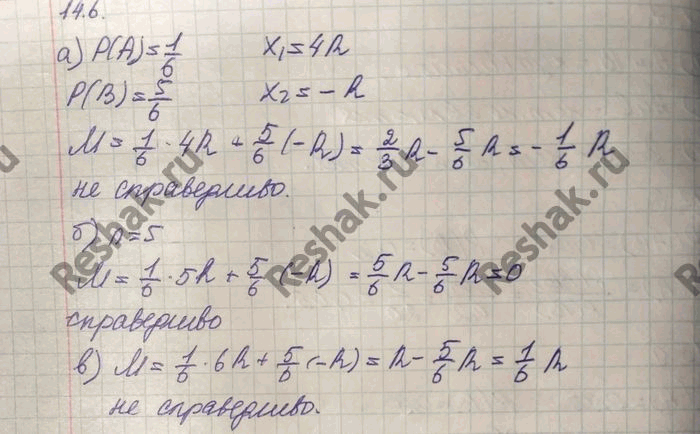 14.6.
а) P(A)=1/6 x₁=4R
P(B)=5/6 x₂=-R
M=1/6·4R+5/6(-R)=2/3R-5/6R=-1/6R
не справедливо.
б) n=5
M=1/6·5R+5/6(-R)=5/6R-5/6R=0
справедливо
в) M=1/6·6R+5/6(-R)=R-5/6R=1/6R
не справедливо.
Reshak.ru
Reshak.ru
Reshak.ru